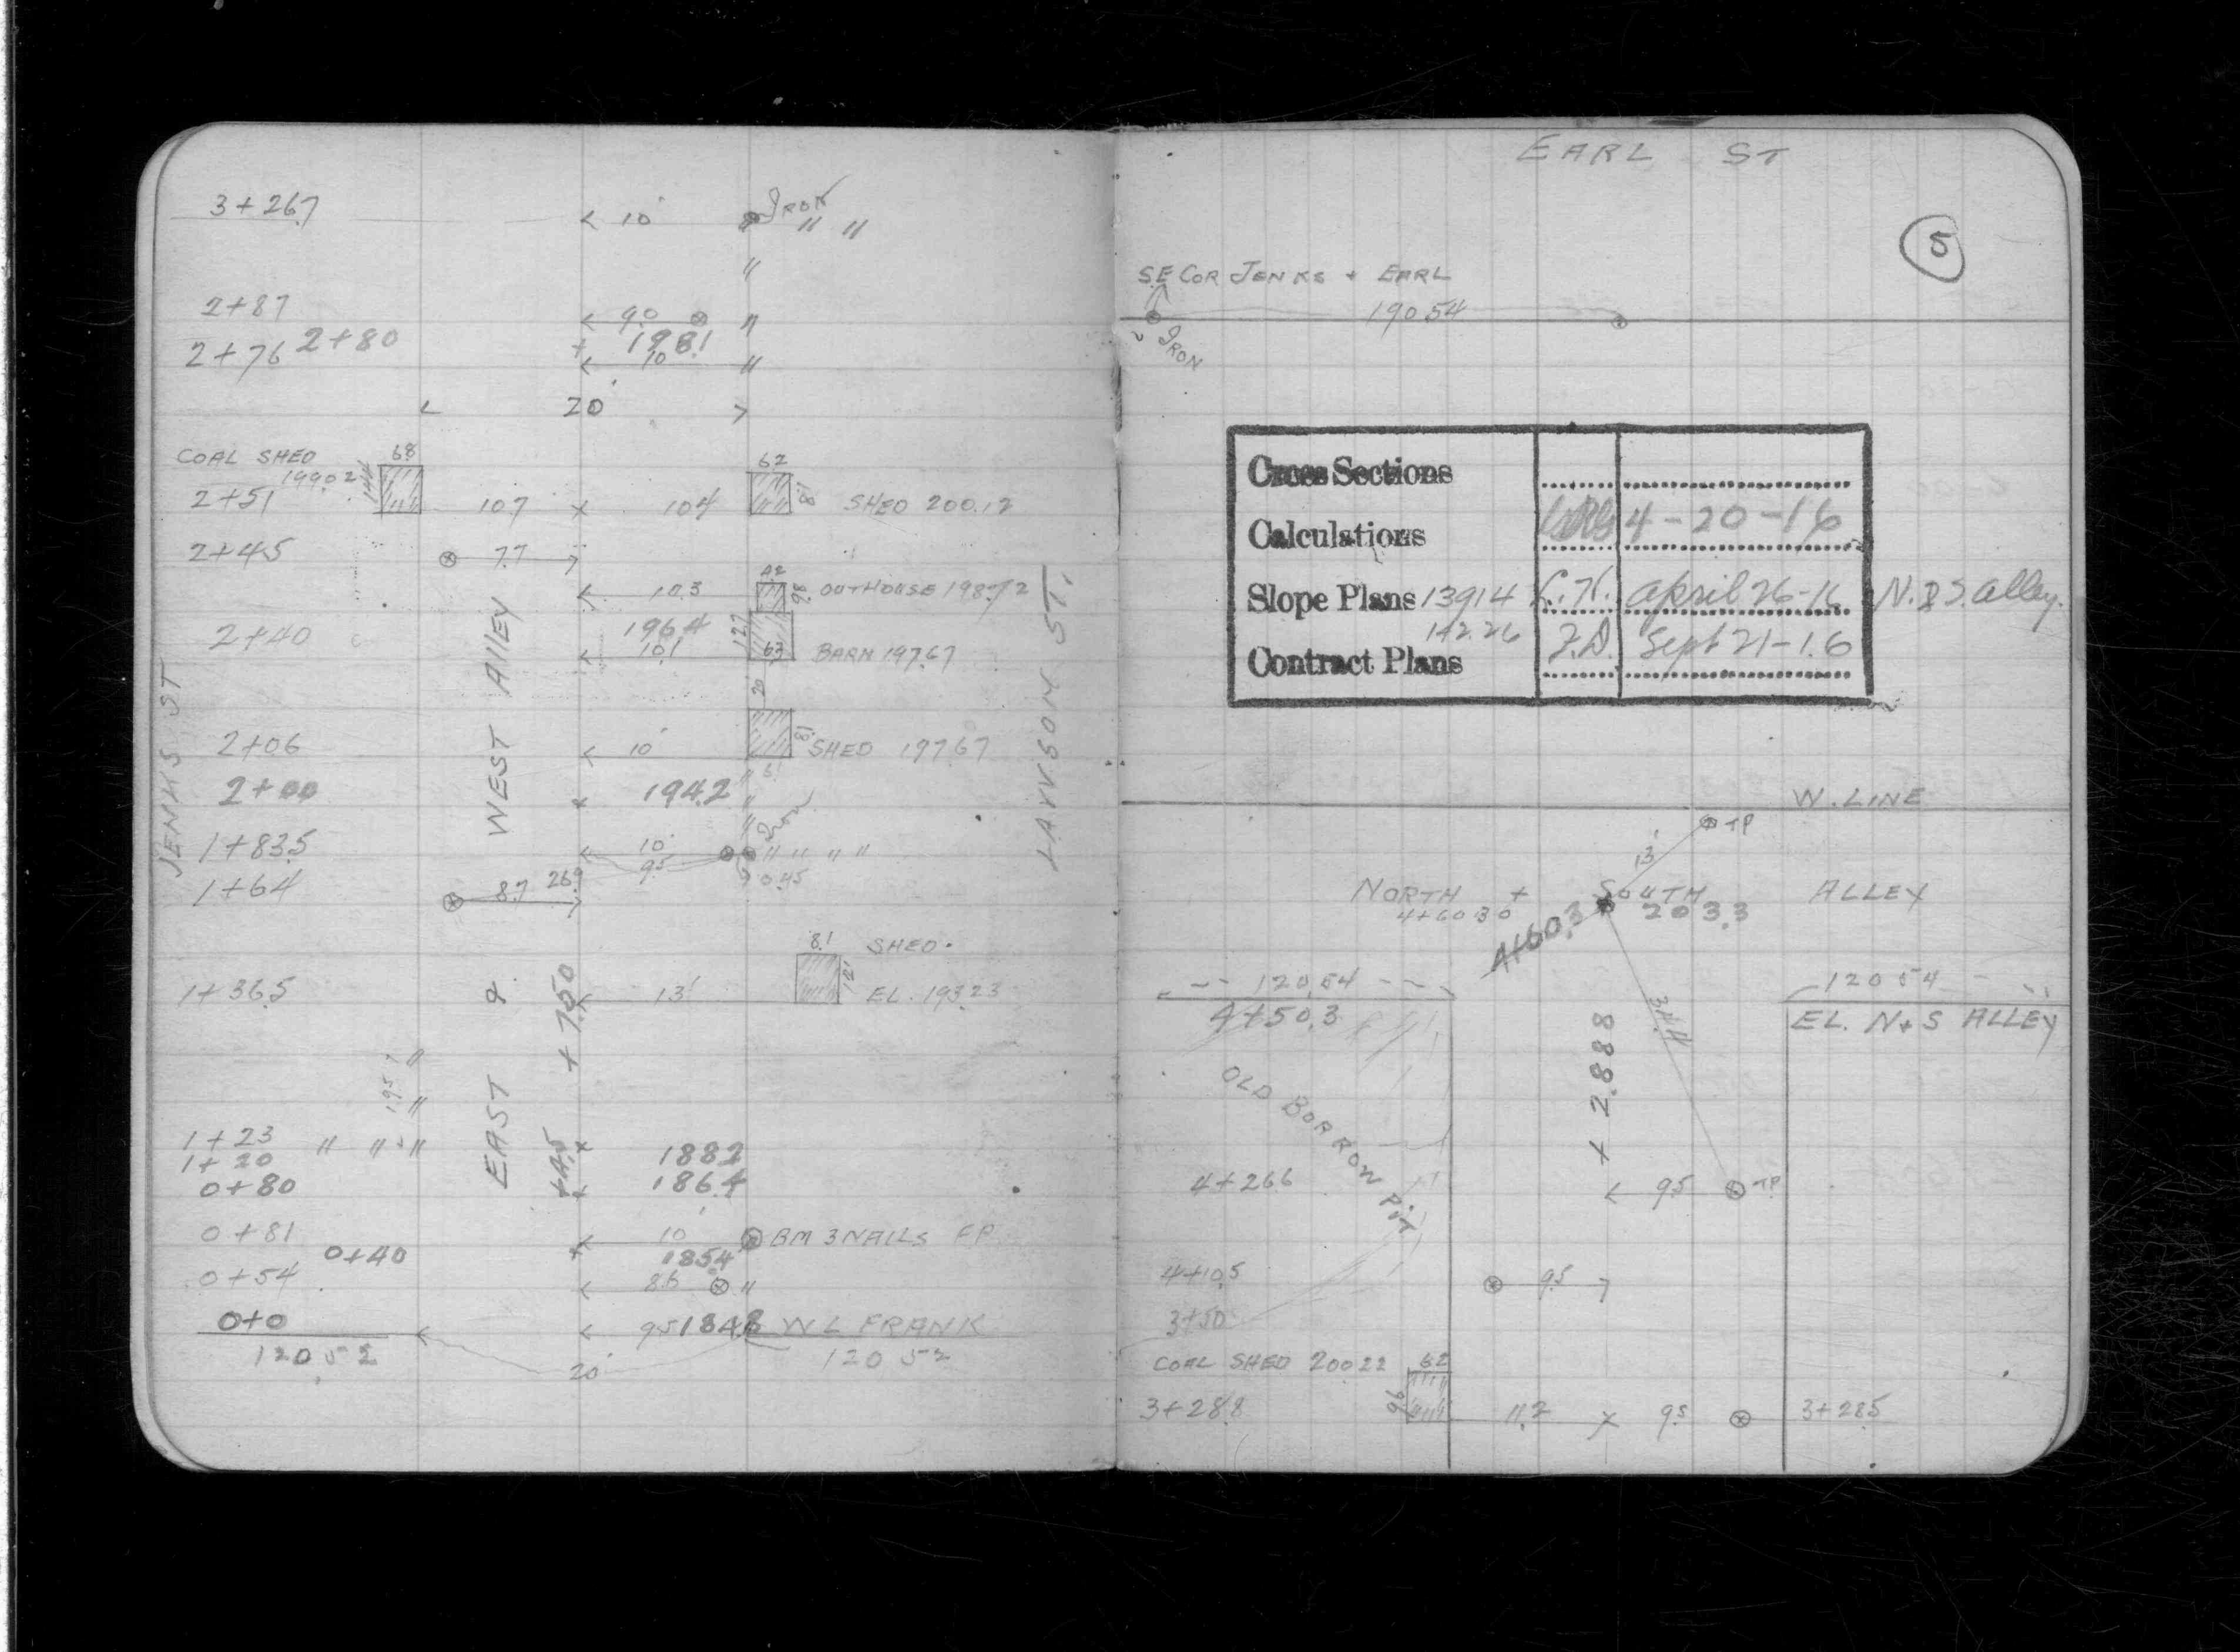 3+26.7 10' IRON
" "
"
2+87 9.0 "
2+80 198.1
2+76 10 "
20'
COAL SHED 6.8 6.2
199.02 14.4
2+51 10.7 10.4 8.1 SHED 200.12
2+45 7.7
4.2
10.3 9.8 OUTHOUSE 198.72
2+40 196.4 12.7
10.1 6.3 BARN 197.67
20
2+06 10' 8.1 SHED 197.67
2+00 194.2 "
"
1+83.5 10' Iron " " " "
9.5 90.45
1+64 8.7 26.9
8.1 SHED
1+36.5 13' 12' EL. 193.23
195.7 "
"
1+23 " " "
1+20 188.2
0+80 186.4
0+81 10' BM 3 NAILS FP
0+40 185.4
0+54 8.6 "
0+0 9.5 184.8 W L FRANK
120.52 20' 120.52
JENKS ST
EAST & WEST Alley
+.45 + 7.50
LAWSON ST.
EARL ST
5
S.E COR JENKS + EARL
190.54
2" IRON
Cross Sections
Calculations 4-20-16
Slope Plans 139.14 L.H. april 26-16 N. & S. alley.
142.26
Contract Plans F.D. Sept 21-16
W. LINE
TP
13'
NORTH + SOUTH ALLEY
4+60.30 203.3
4+60.3
120.54 120.54
4+50.3 EL. N+S ALLEY
+ 2.888
OLD BORROW PIT
4+26.6 9.5 TP
4+10.5 9.5
3+50
COAL SHED 200.22 6.2
9.6
3+28.8 11.2 9.5 3+28.5